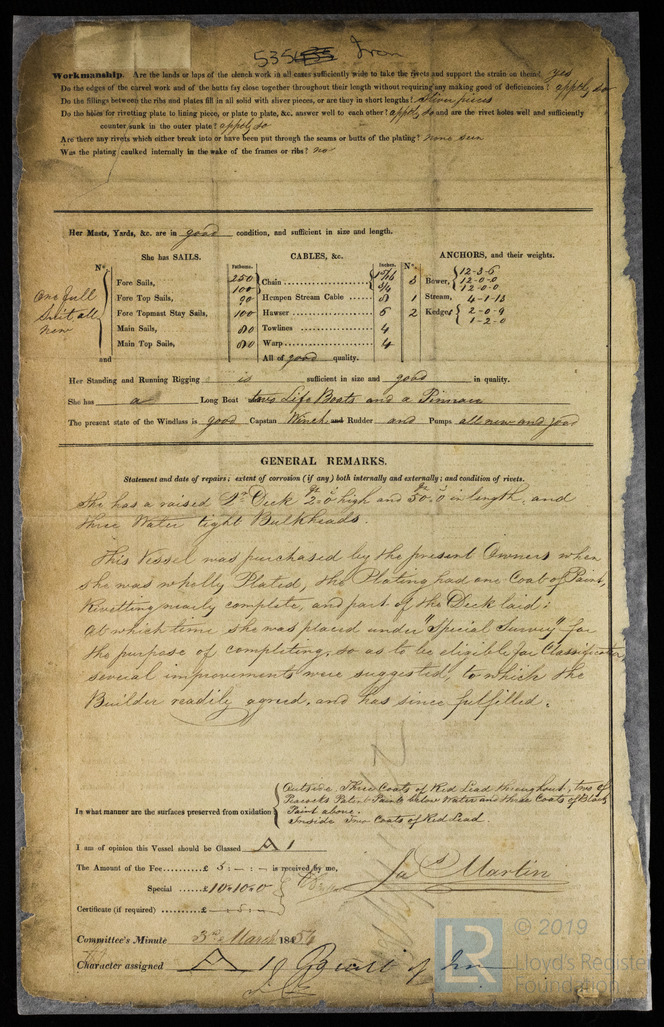 535 Iron
Workmanship. Are the lands or laps of the clench work in all cases sufficiently wide to take the rivets and support the strain on them? yes
Do the edges of the carvel work and of the butts fay close together throughout their length without requiring any making good of deficiencies? apply so
Do the fillings between the ribs and plates fill in all solid with sliver pieces, or are they in short lengths? sliver pieces
Do the holes for rivetting plate to lining piece, or plate to plate, &c. answer well to each other? apply so and are the rivet holes well and sufficiently
counter sunk in the outer plate? apply so
Are there any rivets which either break into or have been put through the seams or butts of the plating? none seen
Was the plating caulked internally in the wake of the frames or ribs? no
Her Masts, Yards, &c. are in good condition, and sufficient in size and length.
She has SAILS. CABLES, &c. ANCHORS, and their weights.
No. Fathoms. Inches. No.
One full Suit all new
Fore Sails, 250 Chain 1 5/16 3 Bower, 12-3-6
100 3/4 12-0-0
Fore Top Sails, 90 Hempen Stream Cable 8 12-0-0
1 Stream, 4-1-13
Fore Topmast Stay Sails, 100 Hawser 6 2 Kedges 2-0-9
1-2-0
Main Sails, 80 Towlines 4
Main Top Sails, 80 Warp 4
and All of good quality.
Her Standing and Running Rigging is sufficient in size and good in quality.
She has a Long Boat two Life Boats and a Pinnace
The present state of the Windlass is good Capstan Winch and Rudder and Pumps all new and good
GENERAL REMARKS.
Statement and date of repairs; extent of corrosion (if any) both internally and externally; and condition of rivets.
She has a raised Qr Deck ft 2.0 high and ft 50.0 in length, and
three Water tight Bulkheads.
This Vessel was purchased by the present Owners when
she was wholly Plated, the Plating had one Coat of Paint,
Rivetting nearly complete, and part of the Deck laid:
at which time she was placed under "Special Survey," for
the purpose of completing, so as to be eligible for Classification,
several improvements were suggested, to which the
Builder readily agreed, and has since fulfilled.
In what manner are the surfaces preserved from oxidation
Outside Three Coats of Red Lead throughout, two of
Peacocks Patent Paint below Water and three Coats of Black
Paint above.
Inside Two Coats of Red Lead.
I am of opinion this Vessel should be Classed A 1
The Amount of the Fee £ 5:-:- is received by me,
Special £10:10:0
Jas Martin
Certificate (if required) £ -:5:-
Committee's Minute 3rd March 1856
Character assigned A 1
© 2019
LR
Lloyd's Register
Foundation